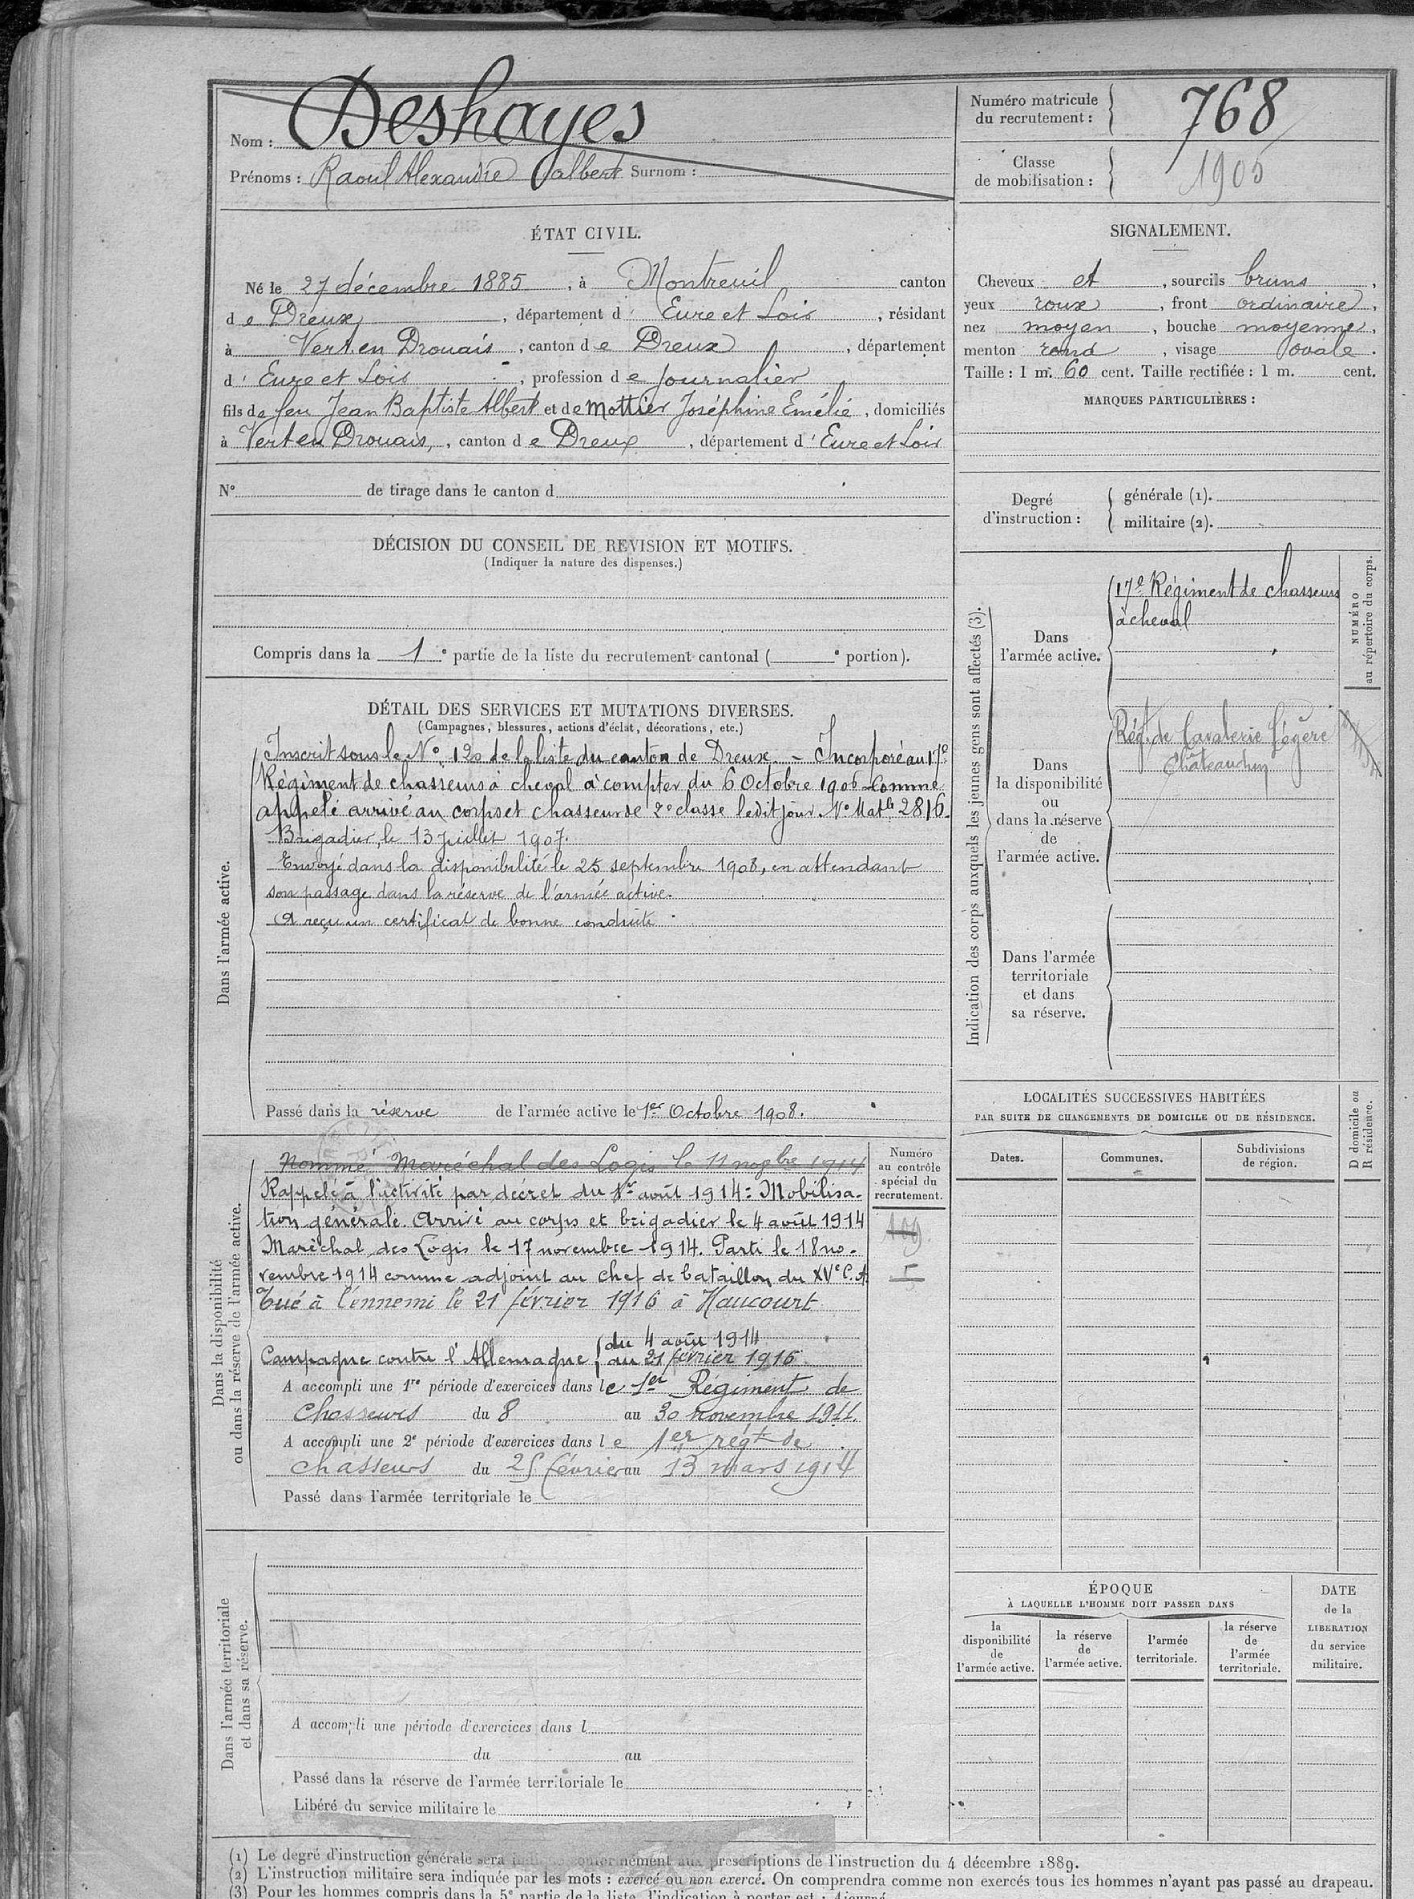 Nom : Deshayes
Prénoms : Raoul Alexandre Albert Surnom :
Numéro matricule du recrutement : 768
Classe de mobilisation : 1905
ÉTAT CIVIL.
Né le 27 décembre 1885, à Montreuil canton
de Dreux, département d' Eure et Loir, résidant
à Vert en Drouais, canton de Dreux, département
d' Eure et Loir, profession de journalier
fils de feu Jean Baptiste Albert et de Mottier Joséphine Emélie, domiciliés
à Vert en Drouais, canton de Dreux, département d' Eure et Loir
N° de tirage dans le canton d
DÉCISION DU CONSEIL DE REVISION ET MOTIFS.
(Indiquer la nature des dispenses.)
Compris dans la 1e partie de la liste du recrutement cantonal ( e portion).
SIGNALEMENT.
Cheveux et, sourcils bruns,
yeux roux, front ordinaire,
nez moyen, bouche moyenne,
menton rond, visage ovale.
Taille : 1 m. 60 cent. Taille rectifiée : 1 m. cent.
MARQUES PARTICULIÈRES :
Degré d'instruction :
générale (1).
militaire (2).
DÉTAIL DES SERVICES ET MUTATIONS DIVERSES.
(Campagnes, blessures, actions d'éclat, décorations, etc.)
Dans l'armée active.
Inscrit sous le N° 120 de la liste du canton de Dreux. - Incorporé au 17e
Régiment de chasseurs à cheval à compter du 6 Octobre 1906 comme
appelé arrivé au corps et chasseur de 2e classe ledit jour. N° Matle 2816.
Brigadier, le 13 juillet 1907.
Envoyé dans la disponibilité le 25 septembre 1908, en attendant
son passage dans la réserve de l'armée active.
A reçu un certificat de bonne conduite.
Passé dans la réserve de l'armée active le 1er Octobre 1908.
Indication des corps auxquels les jeunes gens sont affectés (3).
NUMÉRO au répertoire du corps.
Dans l'armée active.
17e Régiment de chasseurs
à cheval
Dans la disponibilité ou dans la réserve de l'armée active.
Rég. de Cavalerie Légère
Châteaudun
Dans l'armée territoriale et dans sa réserve.
Dans la disponibilité ou dans la réserve de l'armée active.
Numéro au contrôle spécial du recrutement.
109
Nommé Maréchal des Logis le 11 nogbre 1914
Rappelé à l'activité par décret du 1er août 1914 : Mobilisa-
tion générale. Arrivé au corps et brigadier le 4 août 1914
Maréchal des Logis le 17 novembre 1914. Parti le 18 no-
vembre 1914 comme adjoint au chef de bataillon du XVe C.A.
Tué à l'ennemi le 21 février 1916 à Haucourt
Campagne contre l'Allemagne { du 4 août 1914
au 21 février 1916
A accompli une 1re période d'exercices dans le 1er Régiment de
Chasseurs du 8 au 30 novembre 1911.
A accompli une 2e période d'exercices dans le 1er régt de
chasseurs du 25 février au 13 mars 1914
Passé dans l'armée territoriale le
LOCALITÉS SUCCESSIVES HABITÉES
PAR SUITE DE CHANGEMENTS DE DOMICILE OU DE RÉSIDENCE.
D domicile ou R résidence.
Dates. Communes. Subdivisions de région.
Dans l'armée territoriale et dans sa réserve.
A accompli une période d'exercices dans l
du au
Passé dans la réserve de l'armée territoriale le
Libéré du service militaire le
ÉPOQUE
À LAQUELLE L'HOMME DOIT PASSER DANS
la disponibilité de l'armée active.
la réserve de l'armée active.
l'armée territoriale.
la réserve de l'armée territoriale.
DATE de la LIBÉRATION du service militaire.
(1) Le degré d'instruction générale sera indiqué conformément aux prescriptions de l'instruction du 4 décembre 1889.
(2) L'instruction militaire sera indiquée par les mots : exercé ou non exercé. On comprendra comme non exercés tous les hommes n'ayant pas passé au drapeau.
(3) Pour les hommes compris dans la 5e partie de la liste, l'indication à porter est : Ajourné.